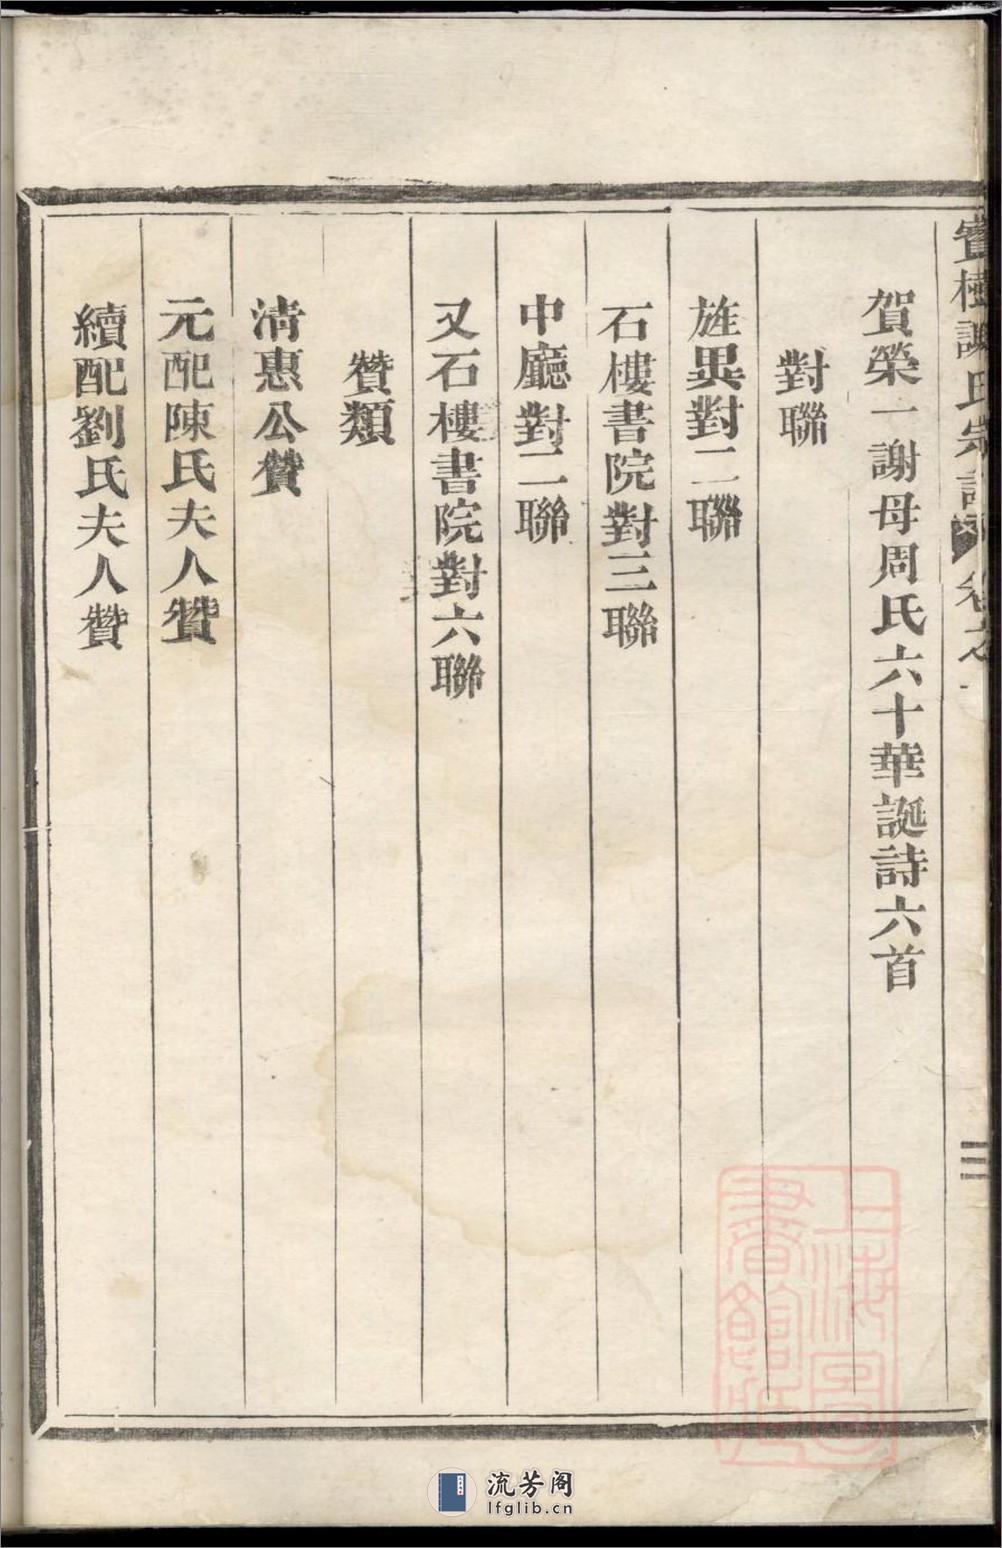 謝氏宗譜 卷之
賀榮一謝母周氏六十華誕詩六首
對聯
旌異對二聯
石樓書院對三聯
中廳對二聯
又石樓書院對六聯
贊類
清惠公贊
元配陳氏夫人贊
續配劉氏夫人贊
三
上海圖書館藏
流芳阁
lfglib.cn